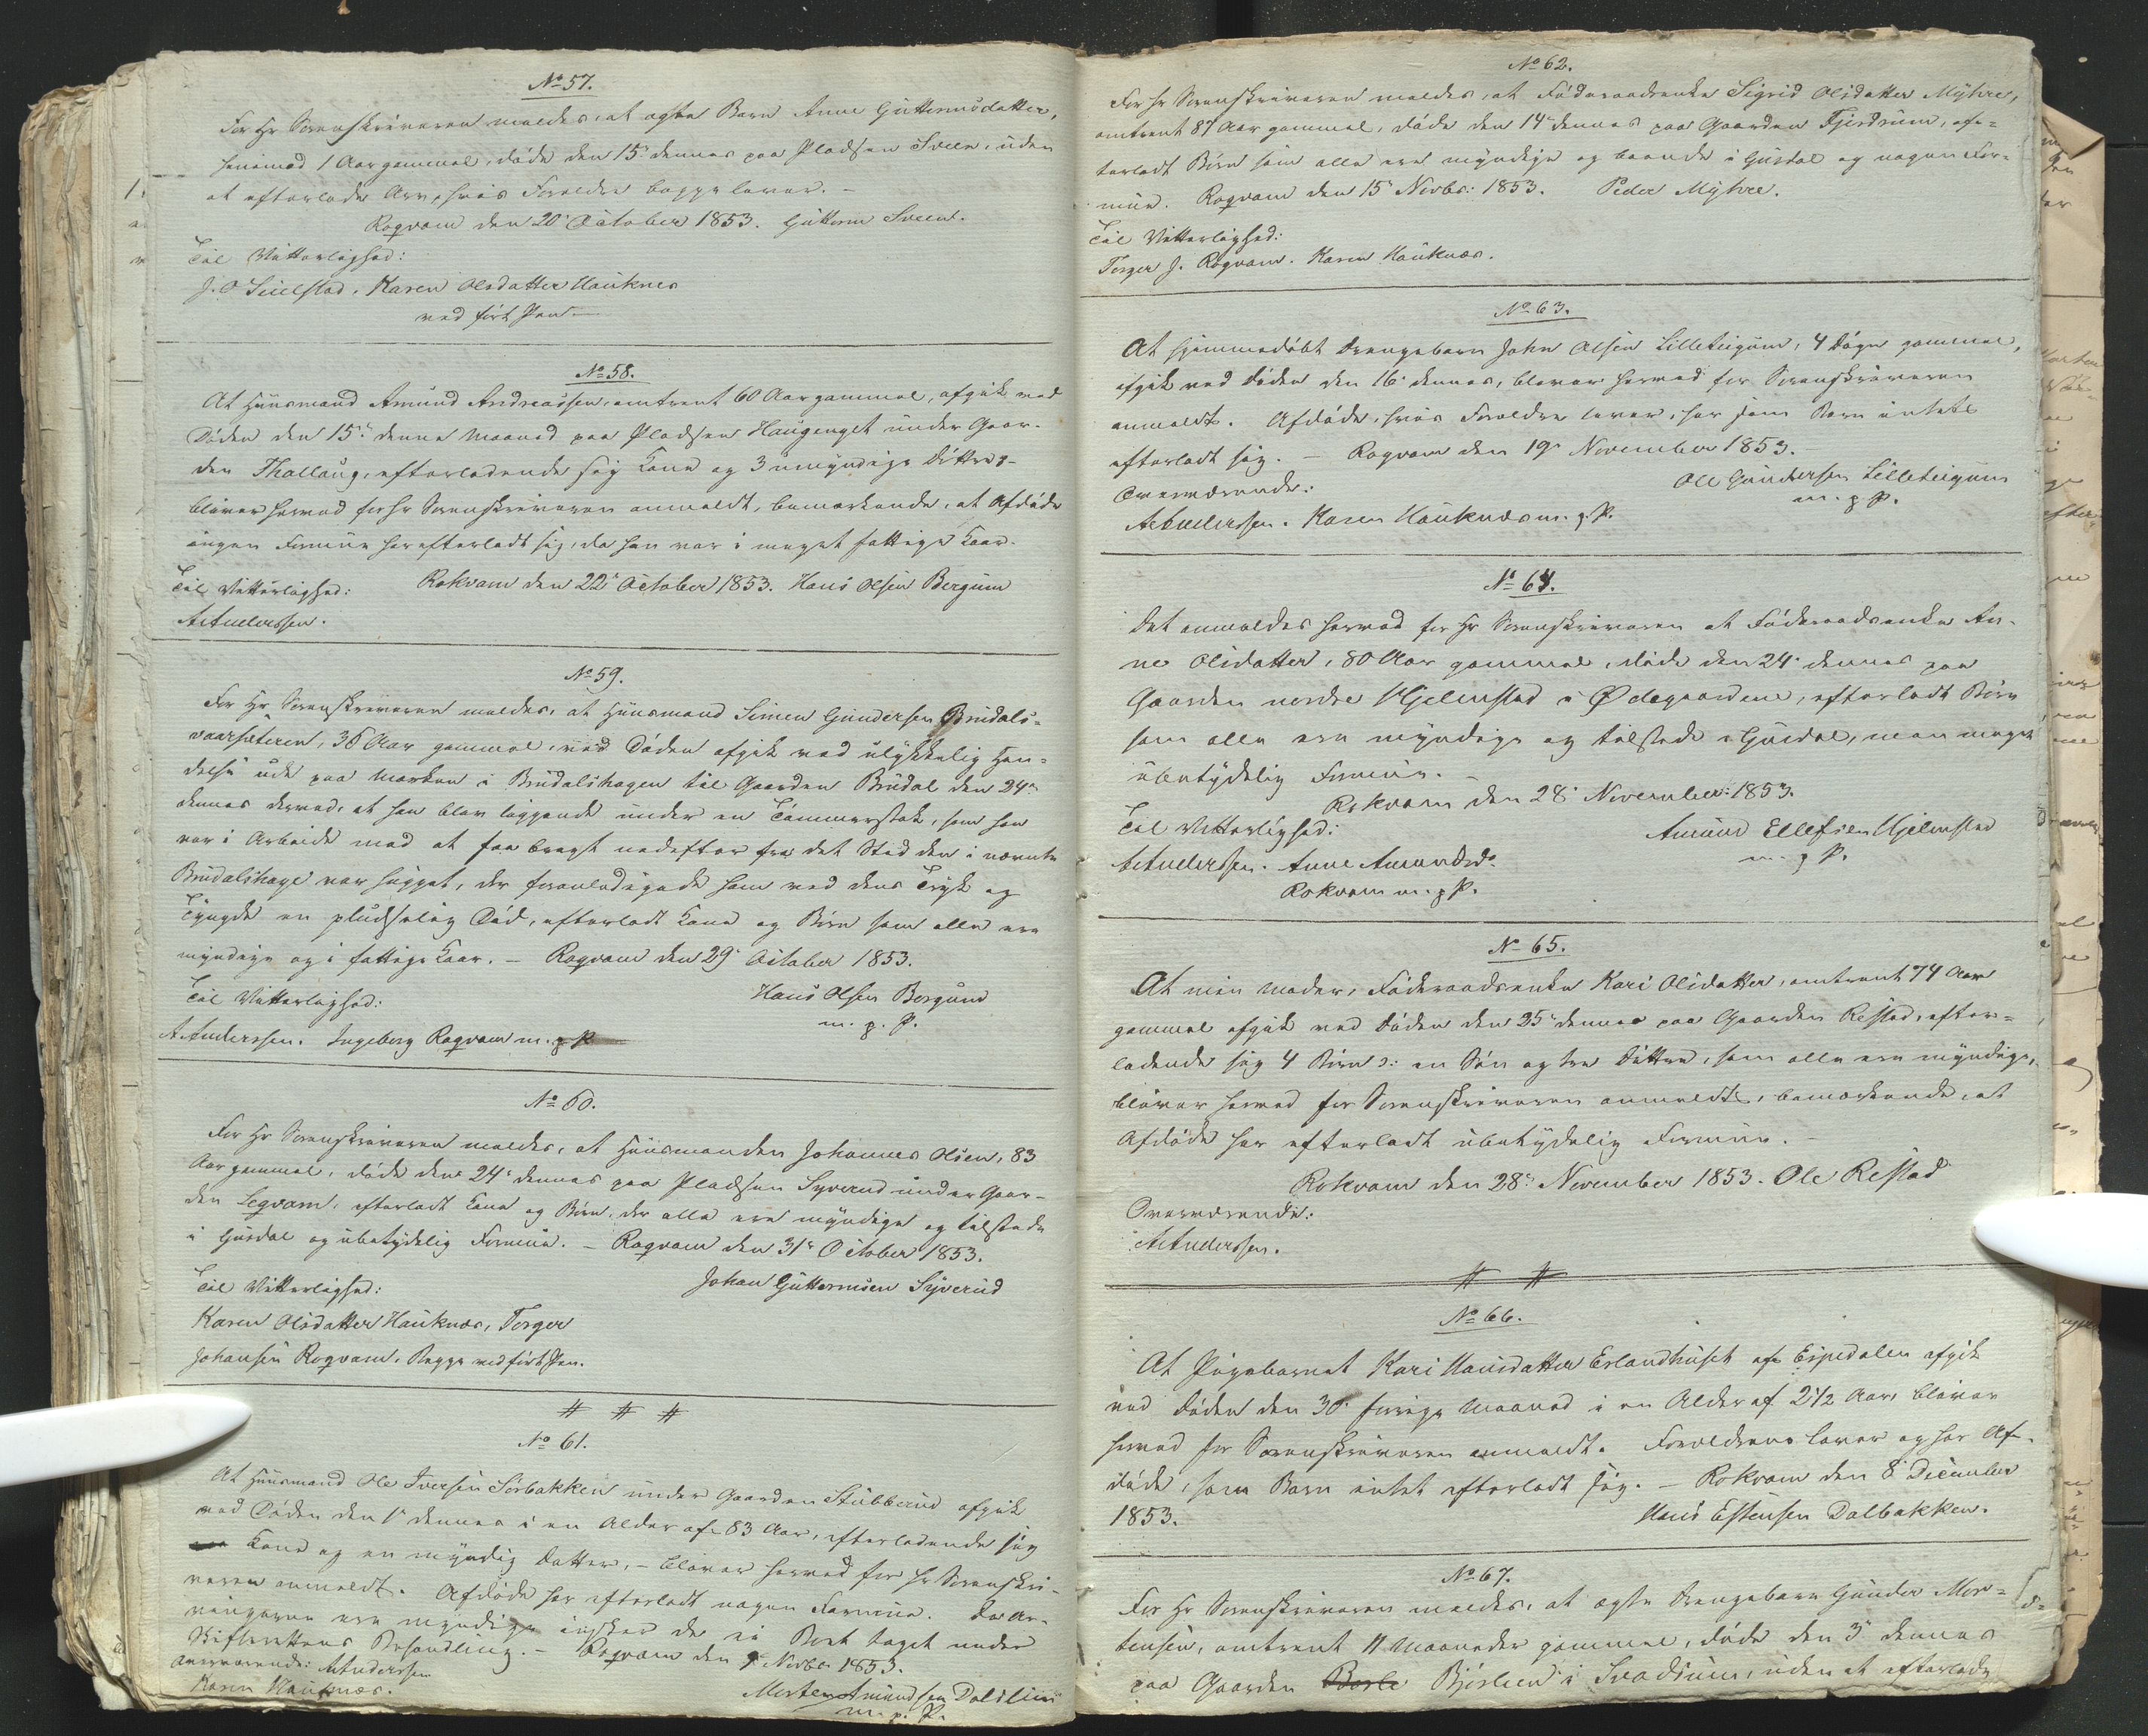 No 57.
For Hr Sorenskriveren meldes, at ægte Barn Anne Guttormsdatter,
henimod 1 Aar gammel, døde den 15de dennes paa Pladsen Sveen, uden
at efterlade Arv, hvis Forældre begge lever. –
Roqvam den 20de October 1853. Guttorm Sveen.
Til Vitterlighed:
J. O Seielstad. Karen Olsdatter Hauknes
ved ført Pen. –
No 58.
At Huusmand Amund Andreassen, omtrent 60 Aar gammel, afgik ved
Døden den 15de denne Maaned paa Pladsen Haugenget under Gaar-
den Thallaug, efterladende sig Kone og 3 umyndige Døttre –
bliver herved for Hr Sorenskriveren anmeldt, bemærkende, at Afdøde
ingen Formue har efterladt sig, da han var i meget fattige Kaar.
Til Vitterlighed: Rokvam den 22de October 1853. Hans Olsen Bergum
A Anderssen.
No 59.
For Hr Sorenskriveren meldes, at Huusmand Simen Gundersen Brudals-
vaarsæteren, 36 Aar gammel, ved Døden afgik ved ulykkelig Hæn-
delse ude paa Marken i Brudalshagen til Gaarden Brudal den 24de
dennes derved, at han blev liggende under en Tømmerstok, som han
var i Arbeide med at faa bragt nedefter fra det Sted den i nævnte
Brudalshage var hugget, der foranledigede ham ved dens Tryk og
Tyngde en pludselig Død, efterladt Kone og Børn som alle ere
myndige og i fattige Kaar. – Roqvam den 29de October 1853.
Til Vitterlighed: Hans Olsen Bergum
m. p. P.
A Anderssen. Ingeborg Roqvam m. p P
No 60.
For Hr Sorenskriveren meldes, at Huusmanden Johannes Olsen, 83
Aar gammel, døde den 24de dennes paa Pladsen Syverud under Gaar-
den Legvam, efterladt Kone og Børn, der alle ere myndige og tilstede
i Gusdal og ubetydelig Formue. – Roqvam den 31te October 1853.
Til Vitterlighed: Johan Guttormsen Syverud
Karen Olsdatter Hauknes, Torger
Johansen Roqvam, Begge ved ført Pen.
# # #
No 61.
At Huusmand Ole Iversen Sørbakken under Gaarden Stubberud afgik
ved Døden den 1ste dennes i en Alder af 83 Aar, efterladende sig
Kone og en myndig Datter, – bliver herved for Hr Sorenskri-
veren anmeldt. Afdøde har efterladt nogen Formue. Da Ar-
vingerne ere myndige ønsker de ei Boet taget under
Skifterettens Behandling. – Roqvam den Novbr 1853.
Overværende: A Anderssen
Karen Hauknæs. Morten Amundsen Dalslien
m. p. P.
No 62.
For Hr Sorenskriveren meldes, at Føderaadsenke Sigrid Olsdatter Myhre,
omtrent 87 Aar gammel, døde den 14de dennes paa Gaarden Fjerdrum, ef-
terladt Børn som alle ere myndige og boende i Gusdal og nogen For-
mue. Roqvam den 15de Novbr: 1853. Peder Myhre.
Til Vitterlighed:
Torger J. Roqvam. Karen Hauknæs.
No 63.
At hjemmedøbt Drengebarn John Olsen Lilleteigum, 4 Døgn gammel,
afgik ved Døden den 16de dennes, bliver herved for Sorenskriveren
anmeldt. Afdøde, hvis Forældre lever, har som Barn intet
efterladt sig. – Roqvam den 19de November 1853.
Overværende: Ole Gundersen Lilleteigum
m. p. P.
A Anderssen. Karen Hauknæs m. p. P.
No 64.
Det anmeldes herved for Hr Sorenskriveren at Føderaadsenke An-
ne Olsdatter, 80 Aar gammel, døde den 24de dennes paa
Gaarden nordre Hjelmstad i Ødegaardene, efterladt Børn
som alle ere myndige og tilstede i Gusdal, men meget
ubetydelig Formue. –
Rokvam den 28de November 1853.
Til Vitterlighed: Amund Ellefsen Hjelmstad
m. p P.
A Anderssen. Anne Amundsdr
Rokvam m. p P.
No 65.
At min Moder, Føderaadsenke Kari Olsdatter, omtrent 74 Aar
gammel afgik ved Døden den 25de dennes paa Gaarden Restad, efter-
ladende sig 4 Børn ɔ: en Søn og tre Døttre, som alle ere myndige,
bliver herved for Sorenskriveren anmeldt, bemærkende, at
Afdøde har efterladt ubetydelig Formue. –
Rokvam den 28de November 1853. Ole Restad
Overværende:
A Anderssen.
# #
No 66.
At Pigebarnet Kari Hansdatter Erlandhuset af Espedalen afgik
ved Døden den 30te forrige Maaned i en Alder af 2 1/2 Aar, bliver
herved for Sorenskriveren anmeldt. Forældrene lever og har Af-
døde, som Barn intet efterladt sig. – Rokvam den 8de December
1853. Hans Estensen Dalbakken.
No 67.
For Hr Sorenskriveren meldes, at ægte Drengebarn Gunder Mor-
tensen, omtrent 11 Maaneder gammel, døde den 3de dennes
paa Gaarden Bjørlien i Svadsum, uden at efterlade